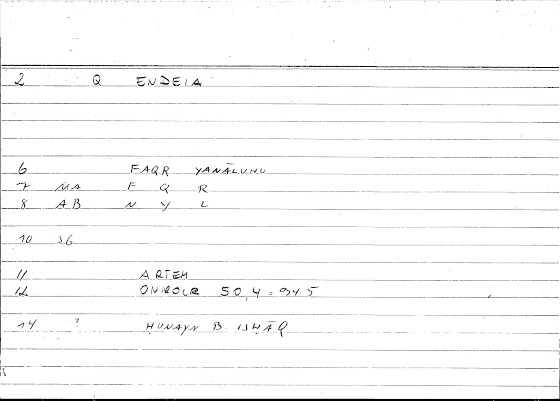 2 Q ENDEIA
6 FAQR YANĀLUHU
7 MA F Q R
8 AB N Y L
10 SG
11 ARTEM
12 ONIROCR 50,4 = 94.5
14 ? ḤUNAYN B. ISḤĀQ